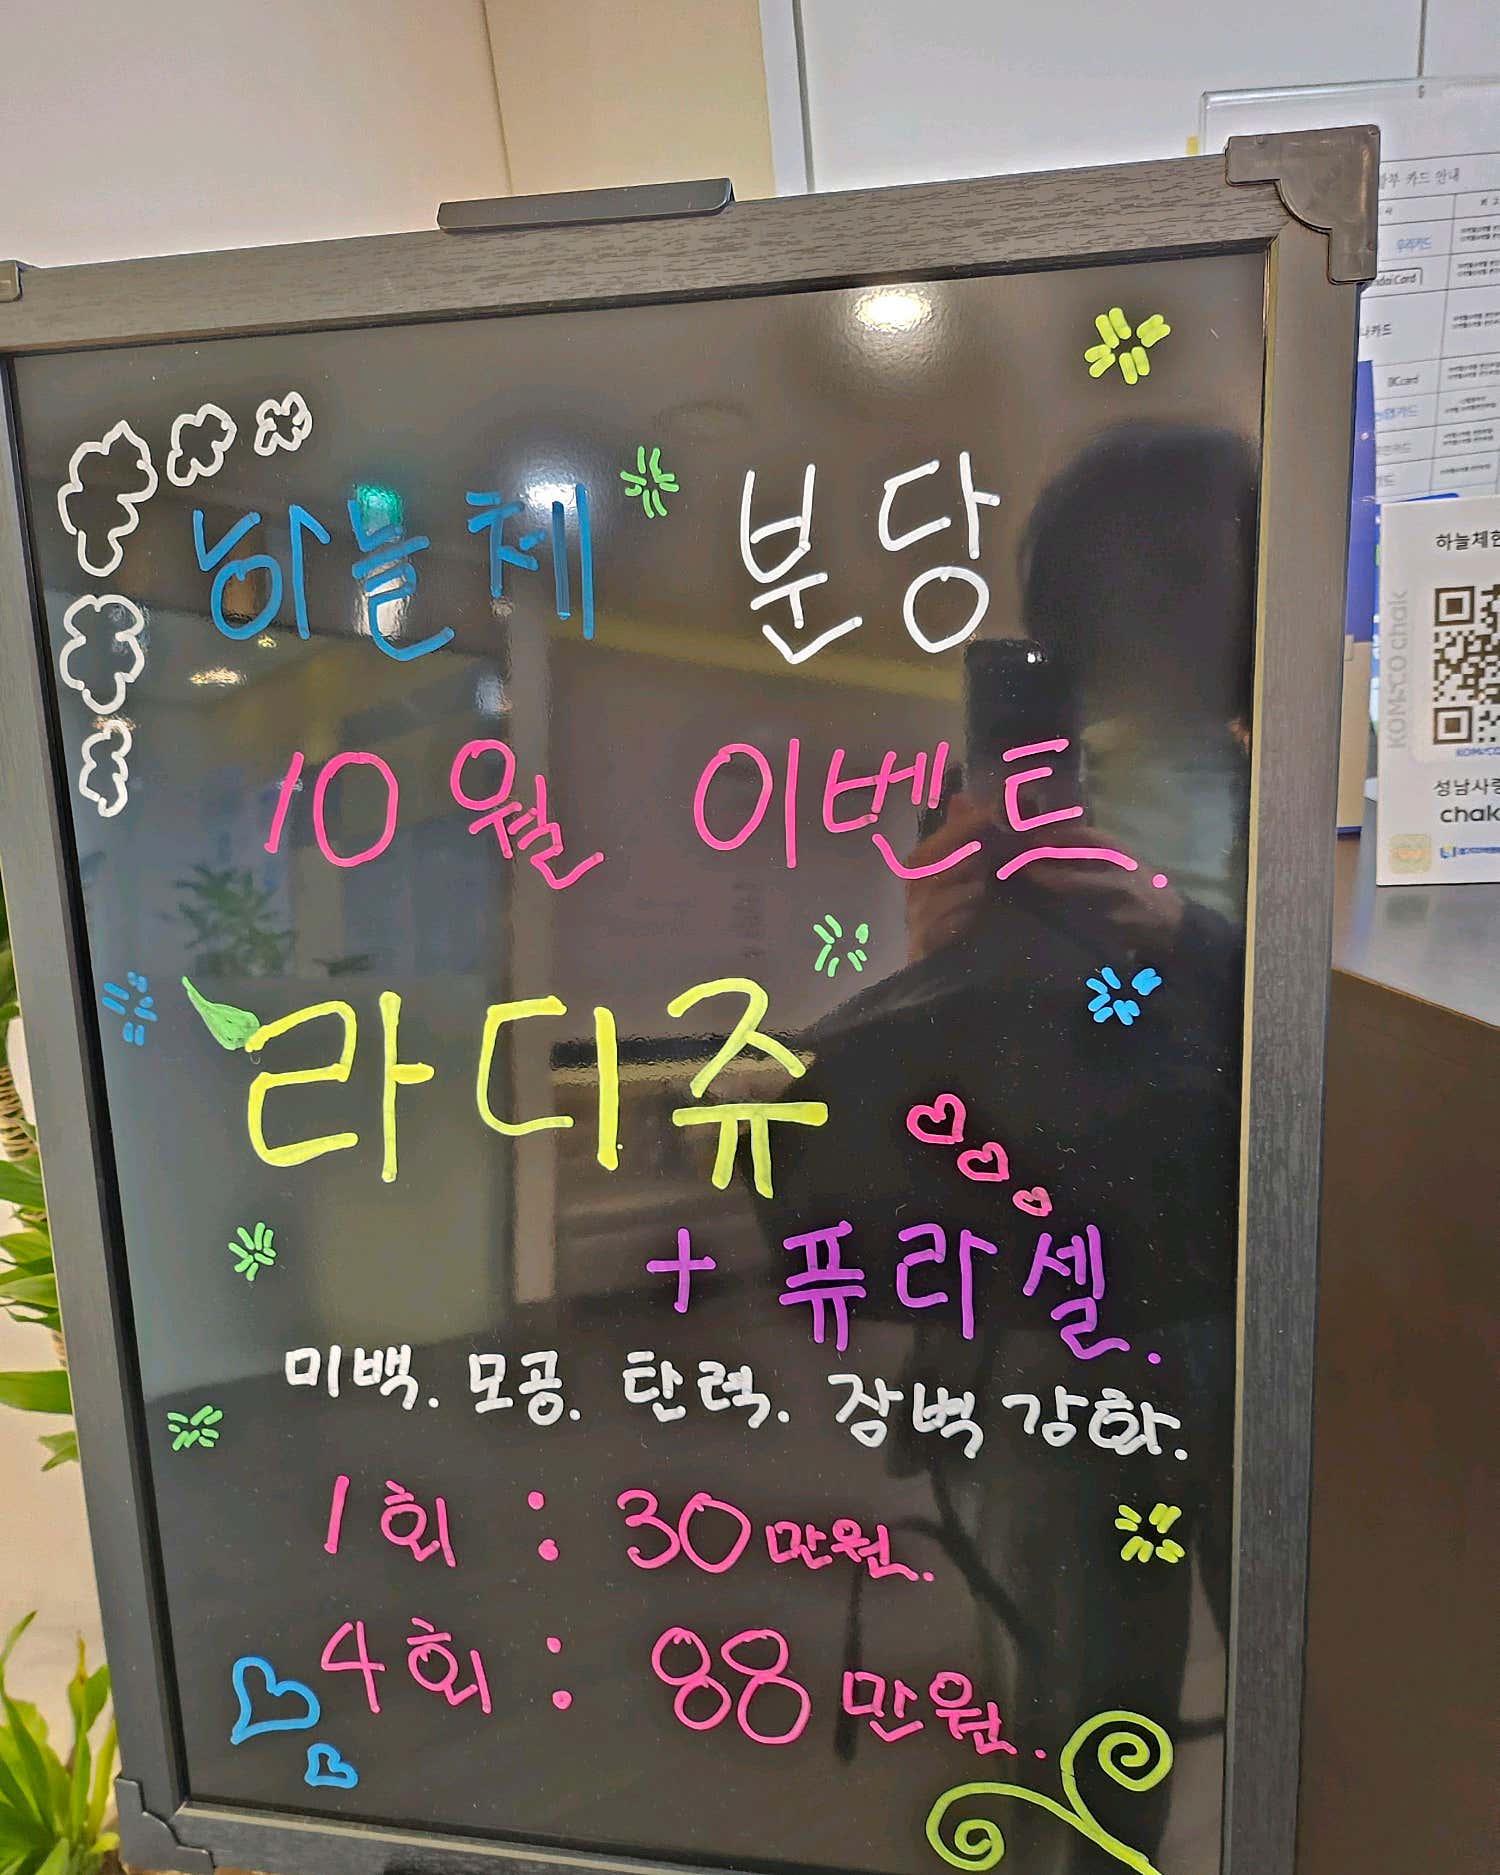 하늘체 분당
10월 이벤트.
라디쥬
+ 퓨라셀.
미백. 모공. 탄력. 장벽강화.
1회 : 30만원.
4회 : 88만원.
카드 안내
우리카드
BCcard
하늘체한
KOMSCO chak
성남사랑
chak